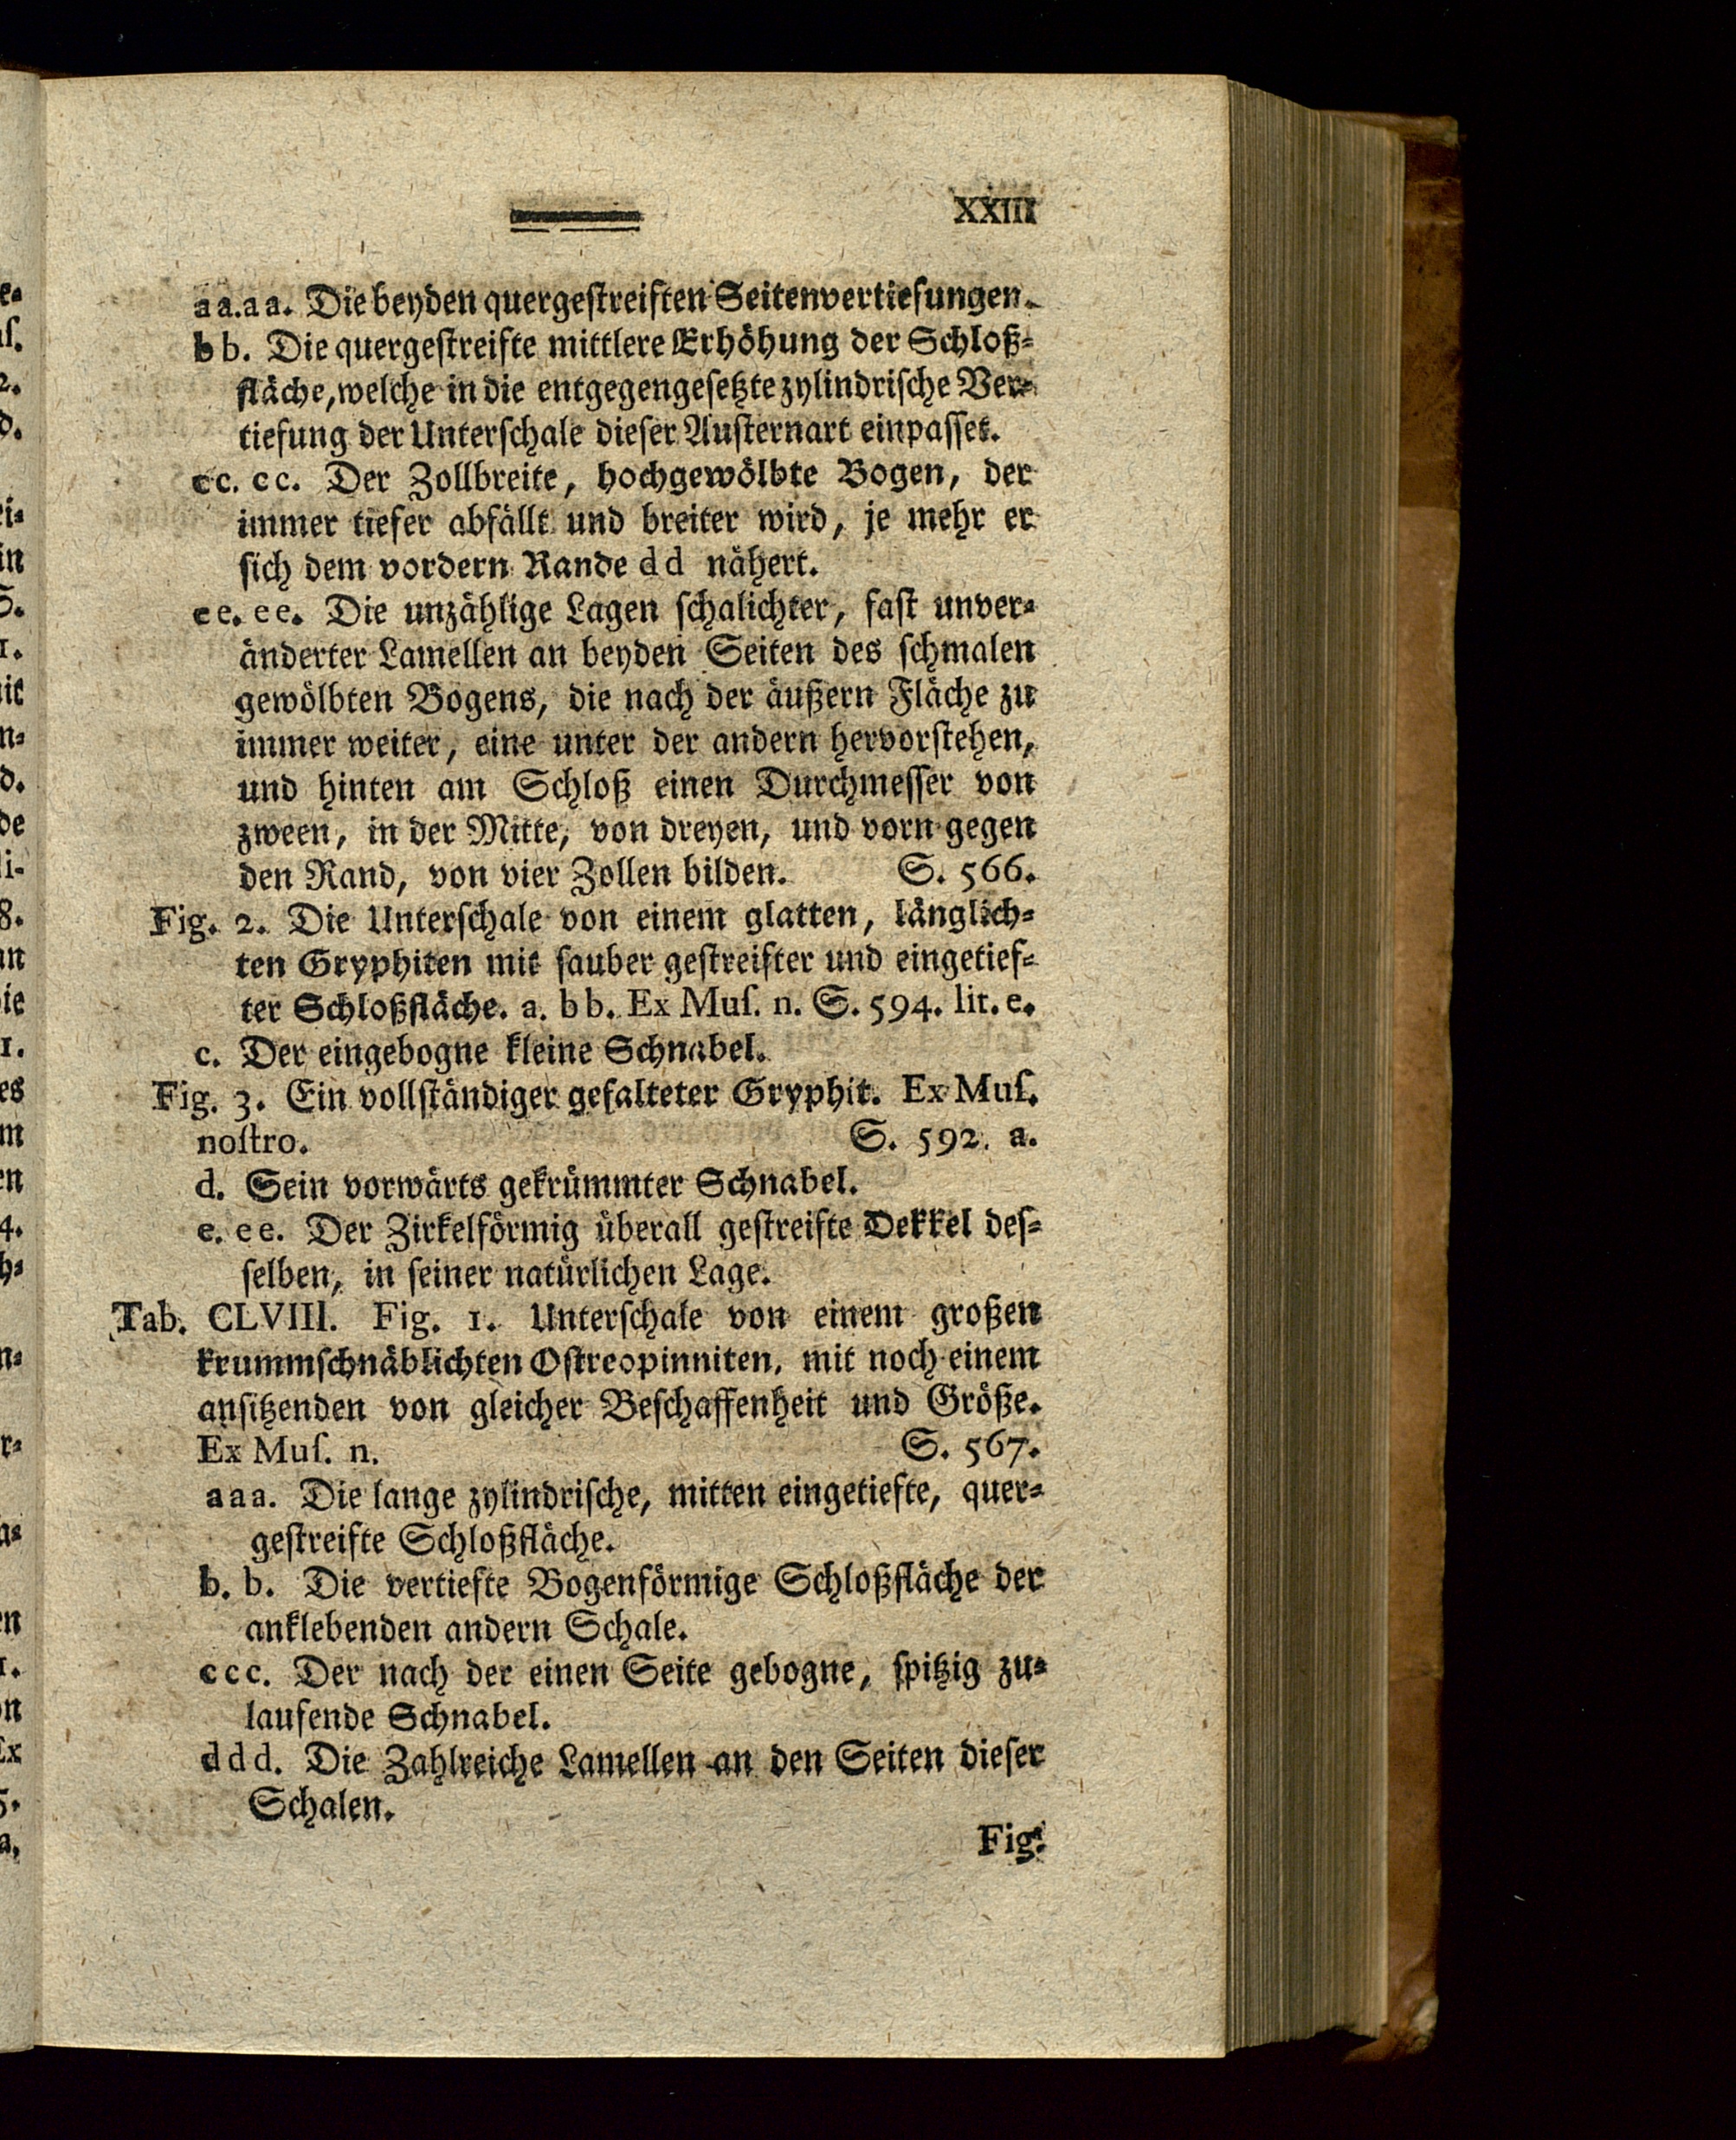 XXIII
aa.aa. Die beyden quergestreiften Seitenvertiefungen.
bb. Die quergestreifte mittlere Erhöhung der Schloß-
fläche, welche in die entgegengesetzte zylindrische Ver-
tiefung der Unterschale dieser Austernart einpasset.
cc. cc. Der Zollbreite, hochgewölbte Bogen, der
immer tiefer abfällt und breiter wird, je mehr er
sich dem vordern Rande dd nähert.
ee. ee. Die unzählige Lagen schalichter, fast unver-
änderter Lamellen an beyden Seiten des schmalen
gewölbten Bogens, die nach der äußern Fläche zu
immer weiter, eine unter der andern hervorstehen,
und hinten am Schloß einen Durchmesser von
zween, in der Mitte, von dreyen, und vorn gegen
den Rand, von vier Zollen bilden. S. 566.
Fig. 2. Die Unterschale von einem glatten, länglich-
ten Gryphiten mit sauber gestreifter und eingetief-
ter Schloßfläche. a. bb. Ex Muſ. n. S. 594. lit. e.
c. Der eingebogne kleine Schnabel.
Fig. 3. Ein vollständiger gefalteter Gryphit. Ex Muſ.
noſtro. S. 592. a.
d. Sein vorwärts gekrümmter Schnabel.
e. ee. Der Zirkelförmig überall gestreifte Dekkel des-
selben, in seiner natürlichen Lage.
Tab. CLVIII. Fig. 1. Unterschale von einem großen
krummschnäblichten Ostreopinniten, mit noch einem
ansitzenden von gleicher Beschaffenheit und Größe.
Ex Muſ. n. S. 567.
aaa. Die lange zylindrische, mitten eingetiefte, quer-
gestreifte Schloßfläche.
b. b. Die vertiefte Bogenförmige Schloßfläche der
anklebenden andern Schale.
ccc. Der nach der einen Seite gebogne, spitzig zu-
laufende Schnabel.
ddd. Die Zahlreiche Lamellen an den Seiten dieser
Schalen.
Fig.